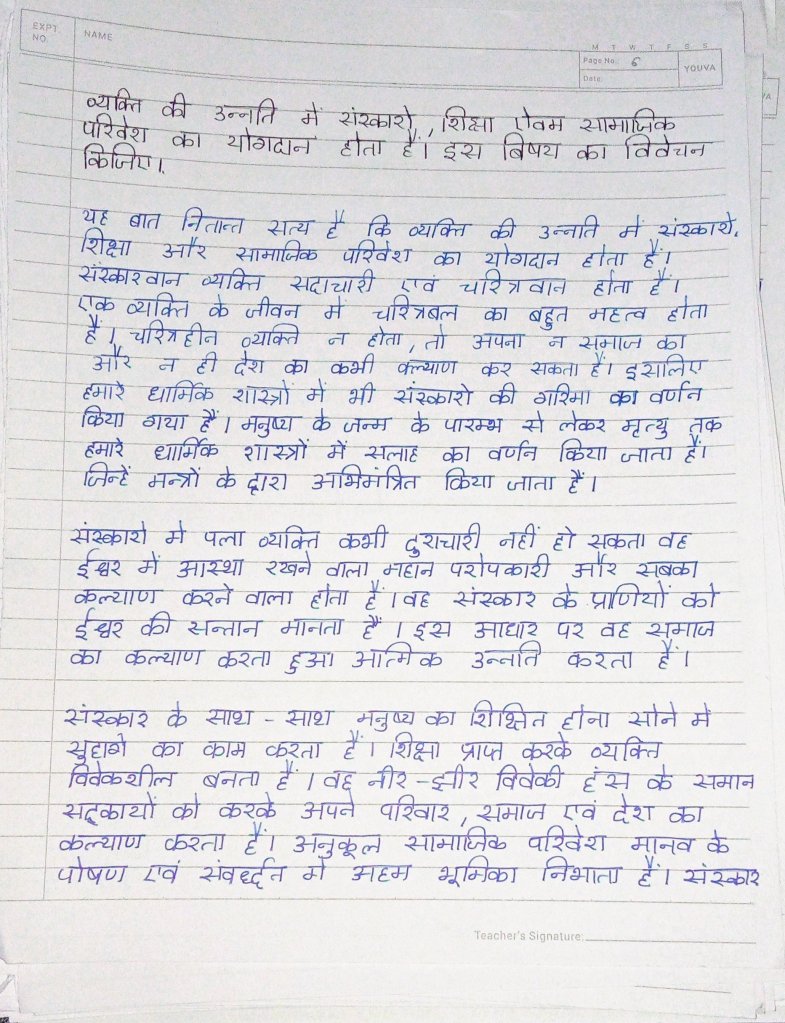 EXPT. NO.
NAME
M T W T F S S
Page No.: 6
YOUVA
Date:
व्यक्ति की उन्नति में संस्कारो, शिक्षा ऐवम सामाजिक
परिवेश का योगदान होता है। इस बिषय का विवेचन
किजिए।
यह बात नितान्त सत्य है कि व्यक्ति की उन्नति में संस्कारो,
शिक्षा और सामाजिक परिवेश का योगदान होता हैं।
संस्कारवान व्यक्ति सदाचारी एवं चरित्रवान होता हैं।
एक व्यक्ति के जीवन में चरित्रबल का बहुत महत्व होता
हैं। चरित्रहीन व्यक्ति न होता, तो अपना न समाज का
और न ही देश का कभी कल्याण कर सकता हैं। इसलिए
हमारे धार्मिक शास्त्रों में भी संस्कारो की गरिमा का वर्णन
किया गया हैं। मनुष्य के जन्म के पारम्भ से लेकर मृत्यु तक
हमारे धार्मिक शास्त्रों में सलाह का वर्णन किया जाता हैं।
जिन्हें मन्त्रों के द्वारा अभिमंत्रित किया जाता हैं।
संस्कारो मे पला व्यक्ति कभी दुराचारी नहीं हो सकता वह
ईश्वर में आस्था रखने वाला महान परोपकारी और सबका
कल्याण करने वाला होता हैं। वह संस्कार के प्राणियों को
ईश्वर की सन्तान मानता हैं। इस आधार पर वह समाज
का कल्याण करता हुआ आत्मिक उन्नति करता हैं।
संस्कार के साथ - साथ मनुष्य का शिक्षित होना सोने में
सुहागे का काम करता हैं। शिक्षा प्राप्त करके व्यक्ति
विवेकशील बनता हैं। वह नीर-झीर विवेकी हंस के समान
सद्कायों को करके अपने परिवार, समाज एवं देश का
कल्याण करता हैं। अनुकूल सामाजिक परिवेश मानव के
पोषण एवं संवर्ध्दत मे अहम भूमिका निभाता हैं। संस्कार
Teacher's Signature: